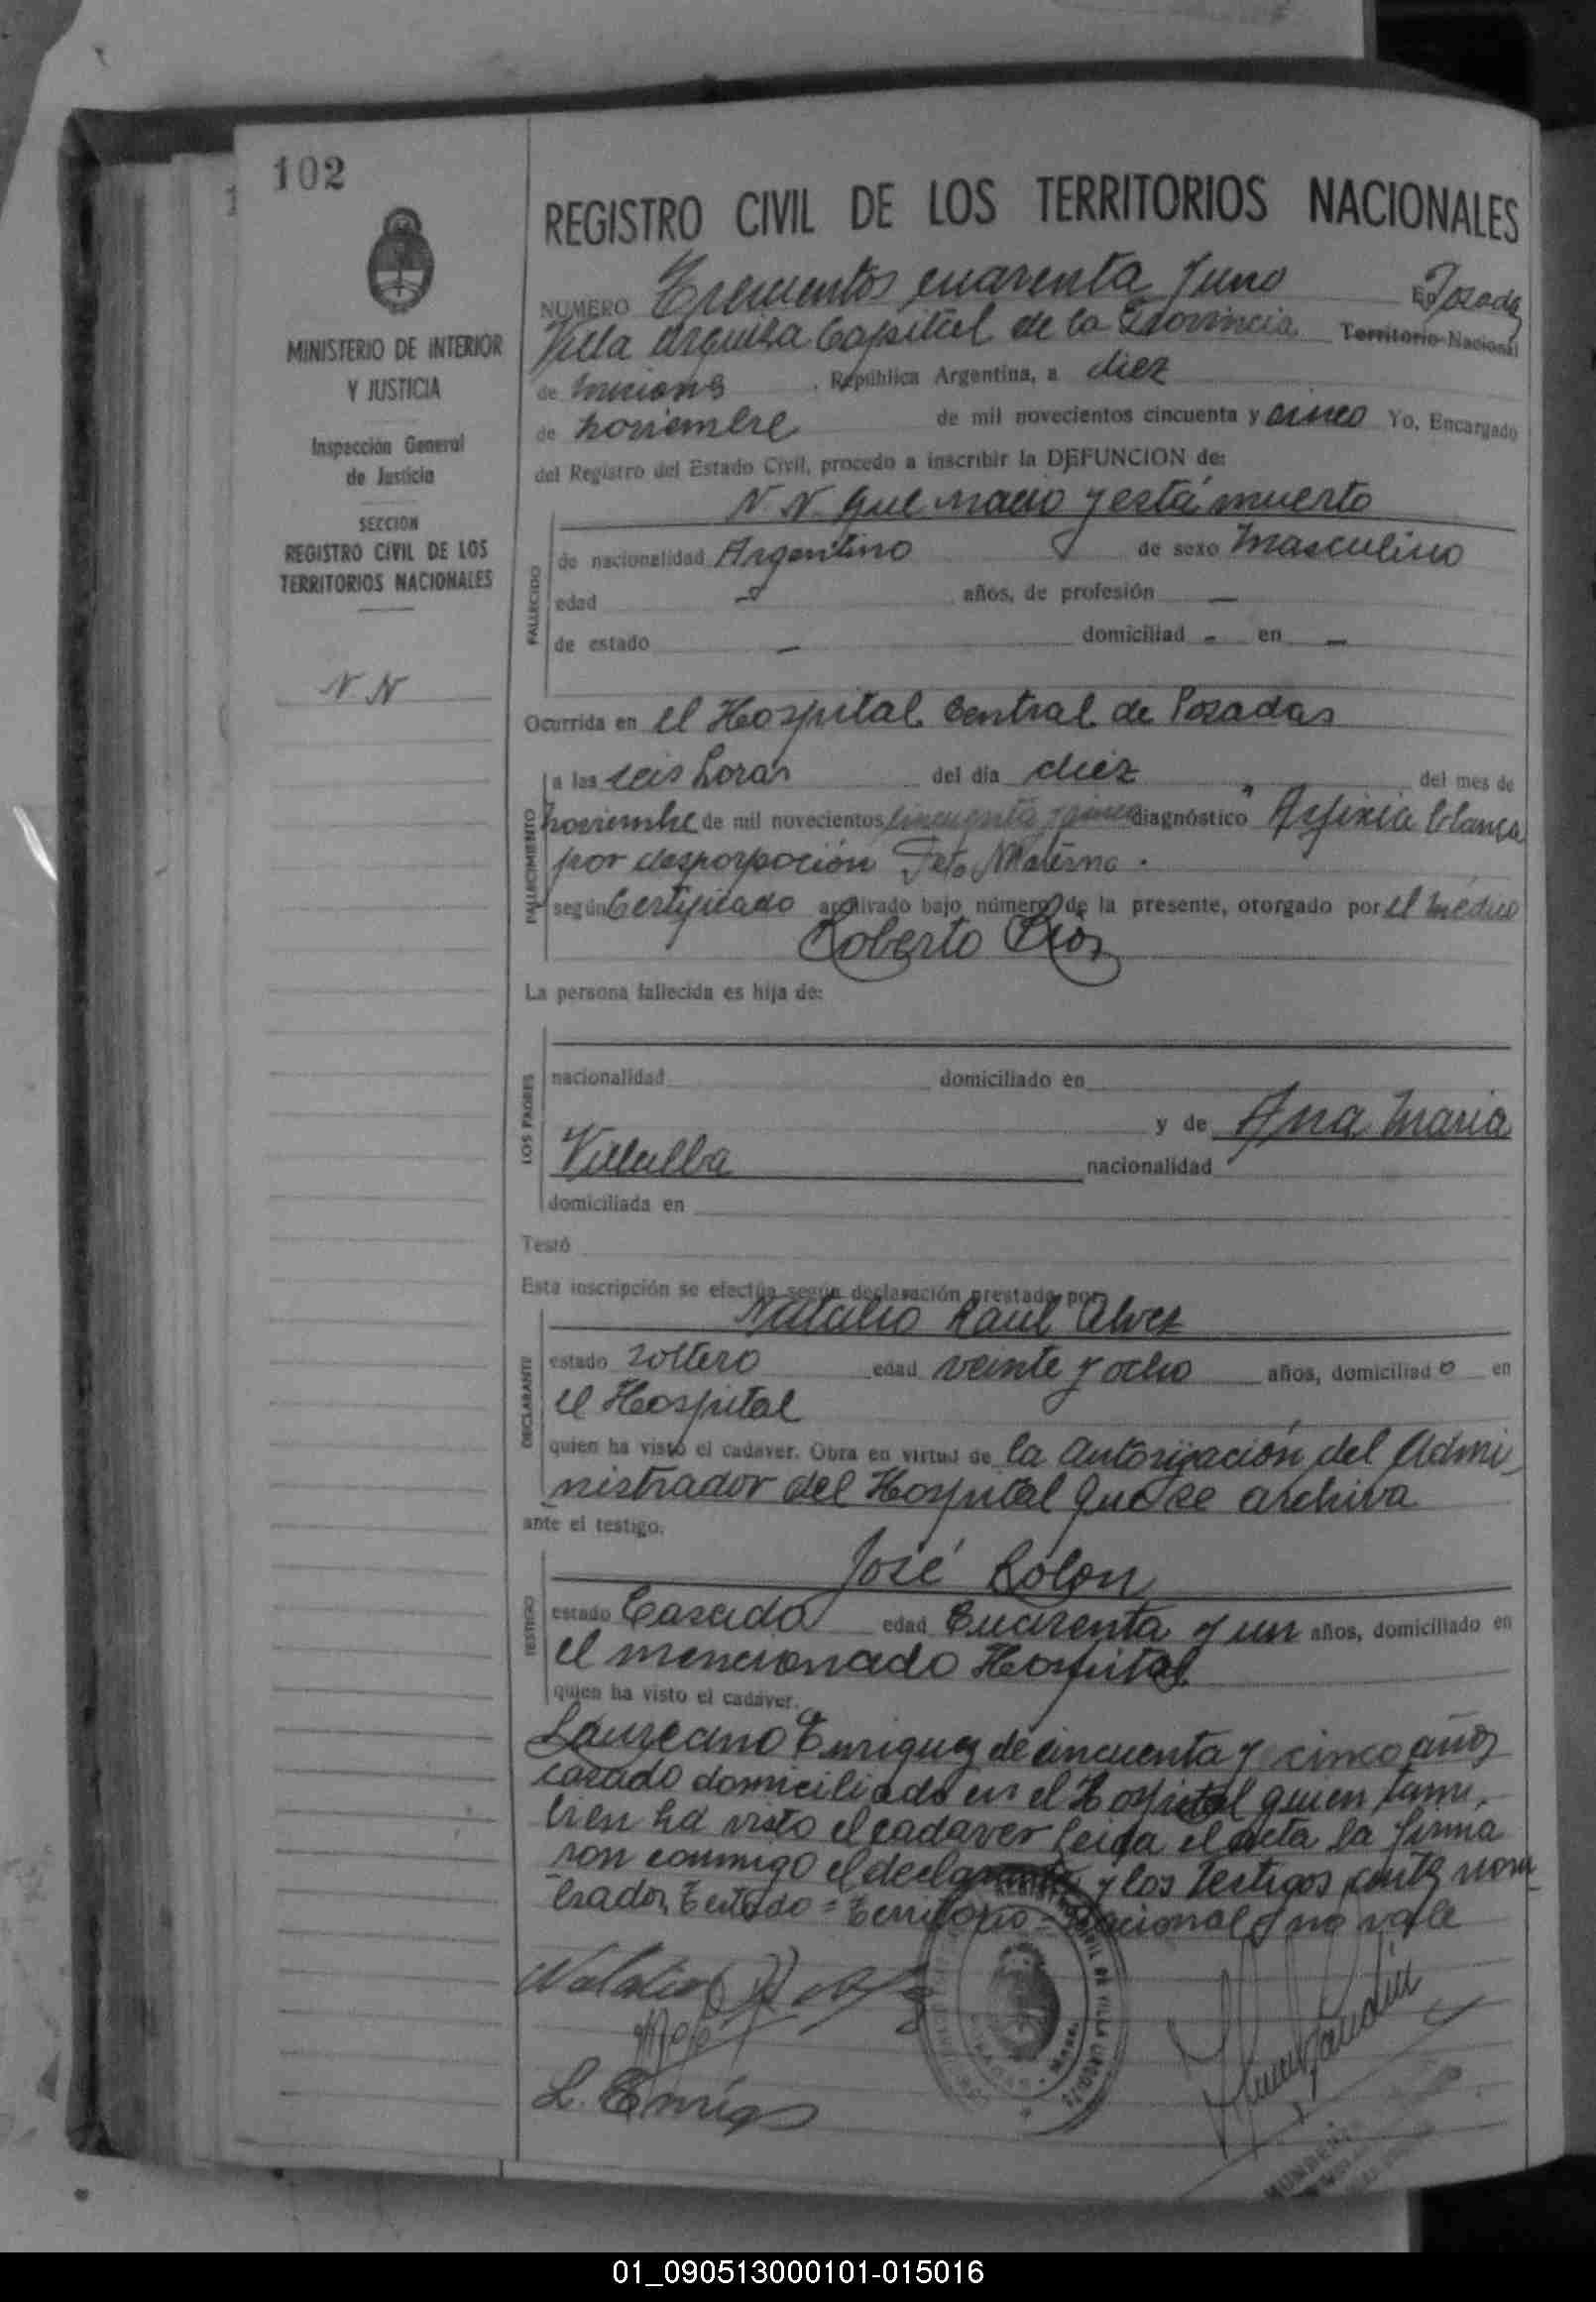 102
REGISTRO CIVIL DE LOS TERRITORIOS NACIONALES
MINISTERIO DE INTERIOR
Y JUSTICIA
Inspección General
de Justicia
SECCION
REGISTRO CIVIL DE LOS
TERRITORIOS NACIONALES
N N
NUMERO Trescientos cuarenta y uno En Posadas
Villa Urquiza Capital de la Provincia Territorio Nacional
de Misiones , República Argentina, a diez
de noviembre de mil novecientos cincuenta y cinco Yo, Encargado
del Registro del Estado Civil, procedo a inscribir la DEFUNCION de:
N. N. que nacio y está muerto
FALLECIDO
de nacionalidad Argentino de sexo Masculino
edad — años, de profesión —
de estado — domiciliad - en —
Ocurrida en el Hospital Central de Posadas
FALLECIMIENTO
a las seis horas del día diez del mes de
noviembre de mil novecientos cincuenta y cinco diagnóstico Asfixia blanca
por desporpoción Feto Materna.
según Certificado archivado bajo número de la presente, otorgado por el médico
Roberto Rios
La persona fallecida es hija de:
LOS PADRES
nacionalidad domiciliado en
y de Ana Maria
Villalba nacionalidad
domiciliada en
Testó
Esta inscripción se efectúa según declaración prestada por
Natalio Raul Alvez
DECLARANTE
estado soltero edad veinte y ocho años, domiciliado en
el Hospital
quien ha visto el cadaver. Obra en virtud de la autorización del Admi
nistrador del Hospital que se archiva
ante el testigo.
José Rolon
TESTIGO
estado Casado edad Cuarenta y un años, domiciliado en
el mencionado Hospital
quien ha visto el cadáver.
Laureano Enriquez de cincuenta y cinco años
casado domiciliado en el Hospital quien tam,
bien ha visto el cadaver Leida el acta la firma
ron conmigo el declarante y los testigos nom
brados Testado = Territorio = Nacional = no vale
L. Enriq
01_090513000101-015016